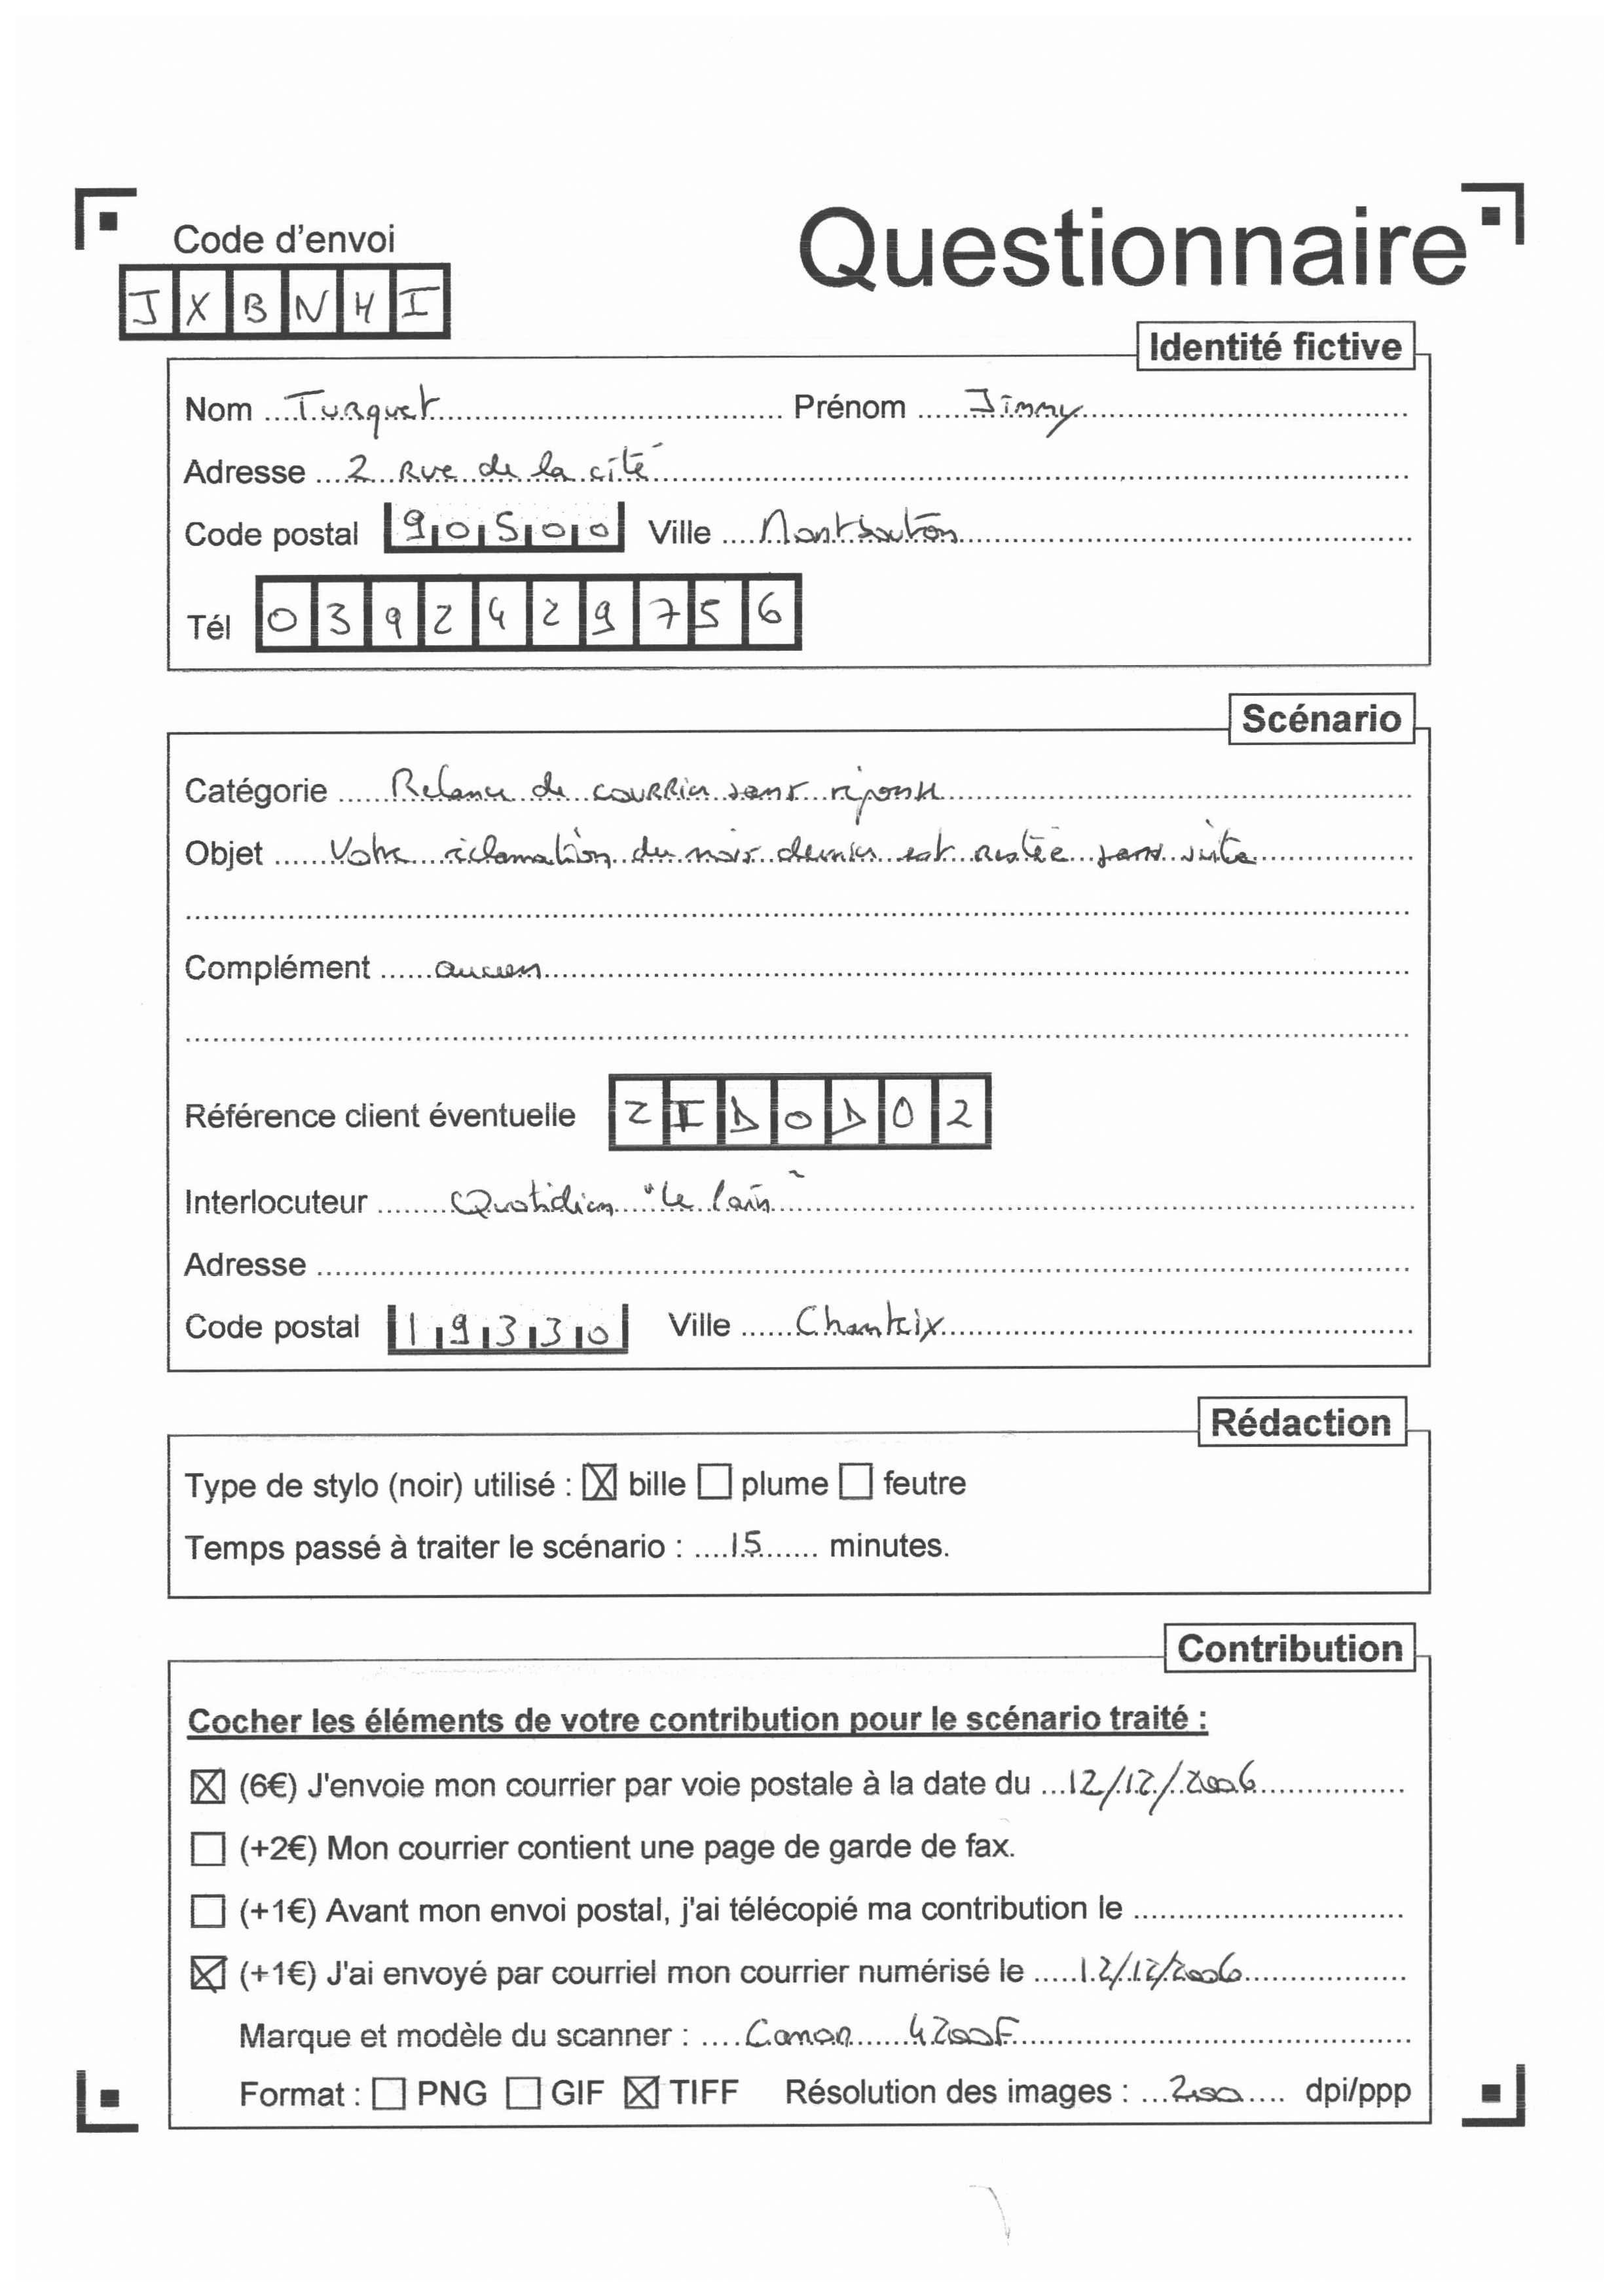 Code d'envoi
Questionnaire
J X B N H I
Identité fictive
Nom Turquet Prénom Jimmy
Adresse 2 Rue de la cité
Code postal 90500 Ville Montbouton
Tél 0392429756
Scénario
Catégorie Relance de courrier sans réponse
Objet Votre réclamation du mois dernier est restée sans suite
Complément aucun
Référence client éventuelle ZIDOD02
Interlocuteur Quotidien "Le
Adresse
Code postal 19330 Ville Chanteix
Rédaction
Type de stylo (noir) utilisé : bille plume feutre
Temps passé à traiter le scénario : 15 minutes.
Contribution
Cocher les éléments de votre contribution pour le scénario traité :
(6€) J'envoie mon courrier par voie postale à la date du 12/12/2006
(+2€) Mon courrier contient une page de garde de fax.
(+1€) Avant mon envoi postal, j'ai télécopié ma contribution le
(+1€) J'ai envoyé par courriel mon courrier numérisé le 12/12/2006
Marque et modèle du scanner : Canon 4200F
Format : PNG GIF TIFF Résolution des images : dpi/ppp